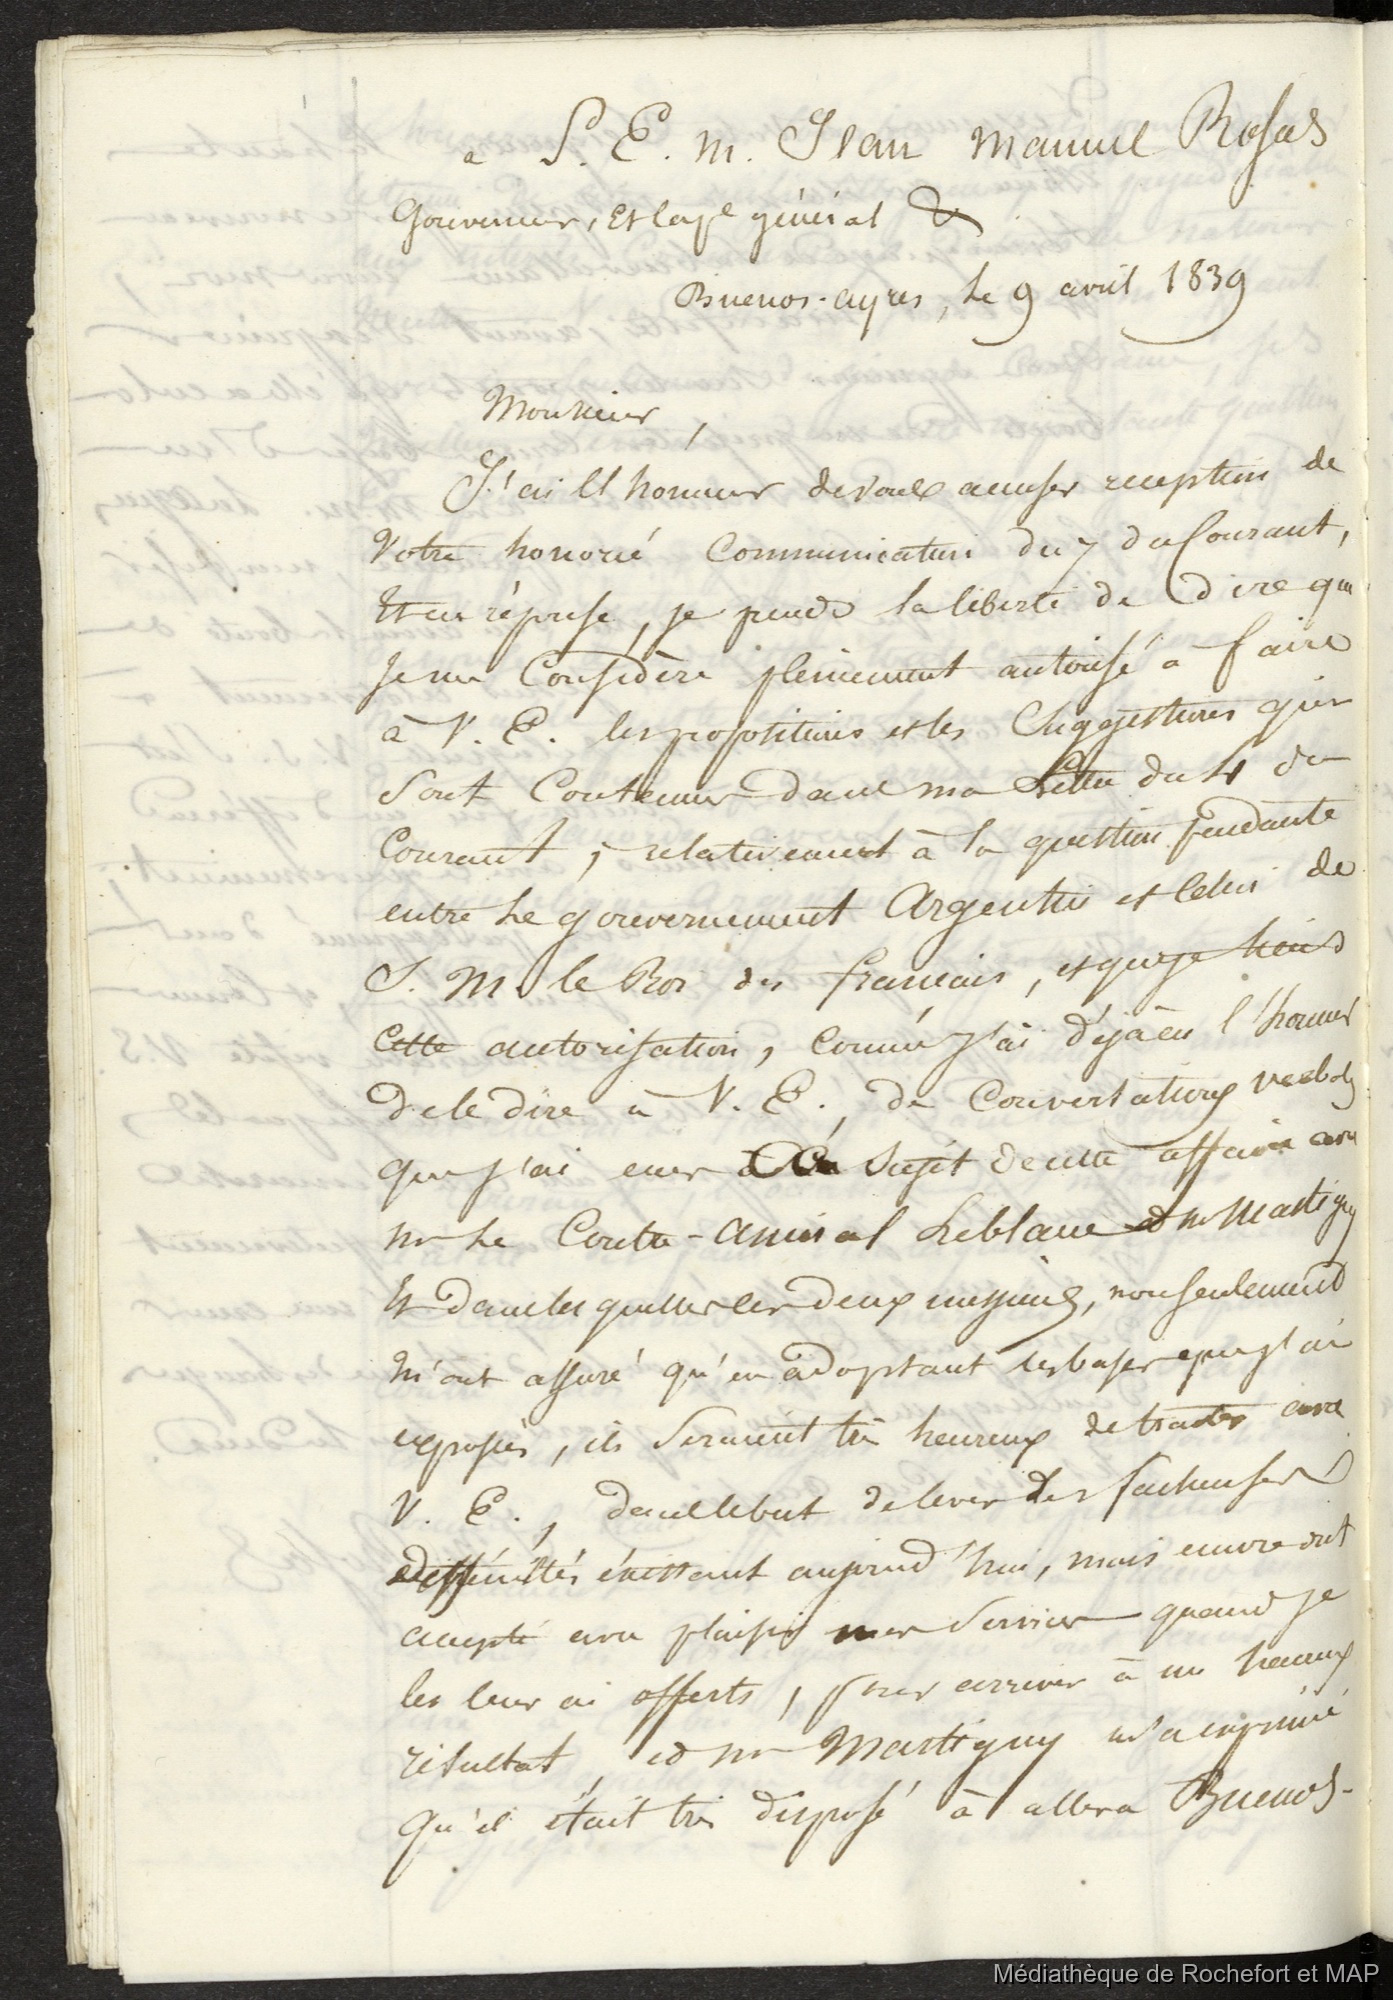 a S. E. M. Jean Manuel Rosas
Gouverneur, et Cap.e général &
Buenos-ayres, le 9 avril 1839
Monsieur,
J'ai l'honneur de vous accuser reception de
Votre honorée Communication du 7 du Courant,
et en réponse, je prends la liberté de dire que
je me Considère pleinement autorisé a faire
à V. E. les propositions et les Suggestions qui
sont Contenues dans ma Lettre du 4 du
Courant, relativement à la question pendante
entre le gouvernement Argentin et Celui de
S. M. le Roi des français, et que je tiens
cette autorisation, Comme j'ai déjà eu l'honneur
de le dire à V. E., de Conversations verbales
que j'ai eues au Sujet de cette affaire avec
Mr le Contre-Amiral Leblanc et Mr Martigny
Et dans les quelles ces deux messieurs, non seulement
m'ont assuré qu'en adoptant les bases que j'ai
exposées, ils seraient très heureux de traiter avec
V. E., dans le but de lever les facheuses
difficultés éxistant aujourd'hui, mais encore ont
accepté avec plaisir mes Services quand je
les leur ai offerts, pour arriver à un heureux
résultat, et Mr Martigny m'a exprimé
qu'il était très disposé à aller a Buenos-
Médiathèque de Rochefort et MAP